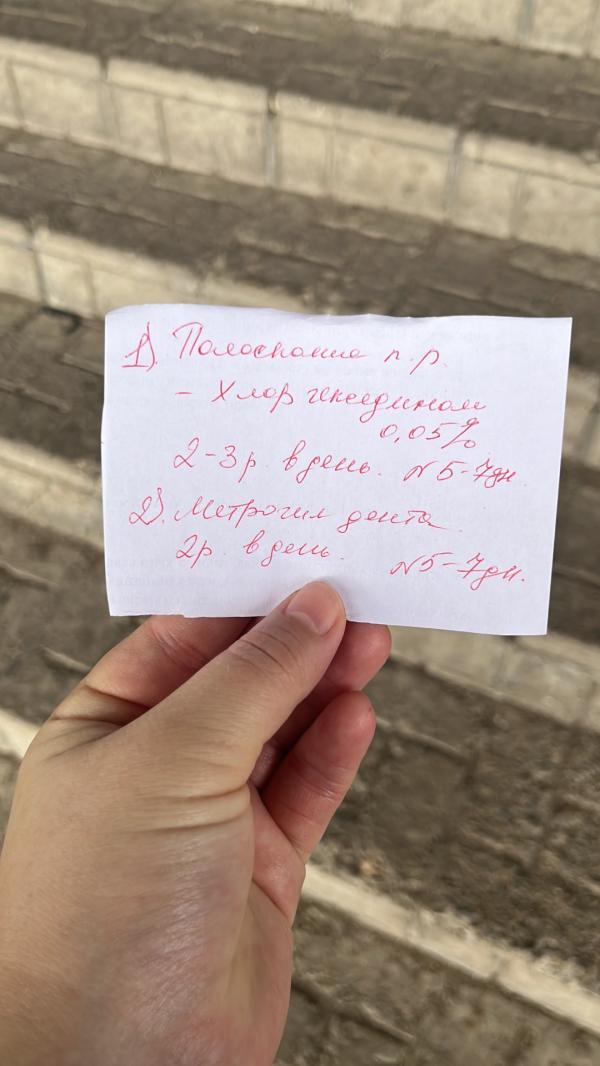 1). Полоскание п.р.
- Хлоргексидином
0,05%
2-3р. в день. N5-7дн.
2). Метрогил дента
2р. в день. N5-7дн.